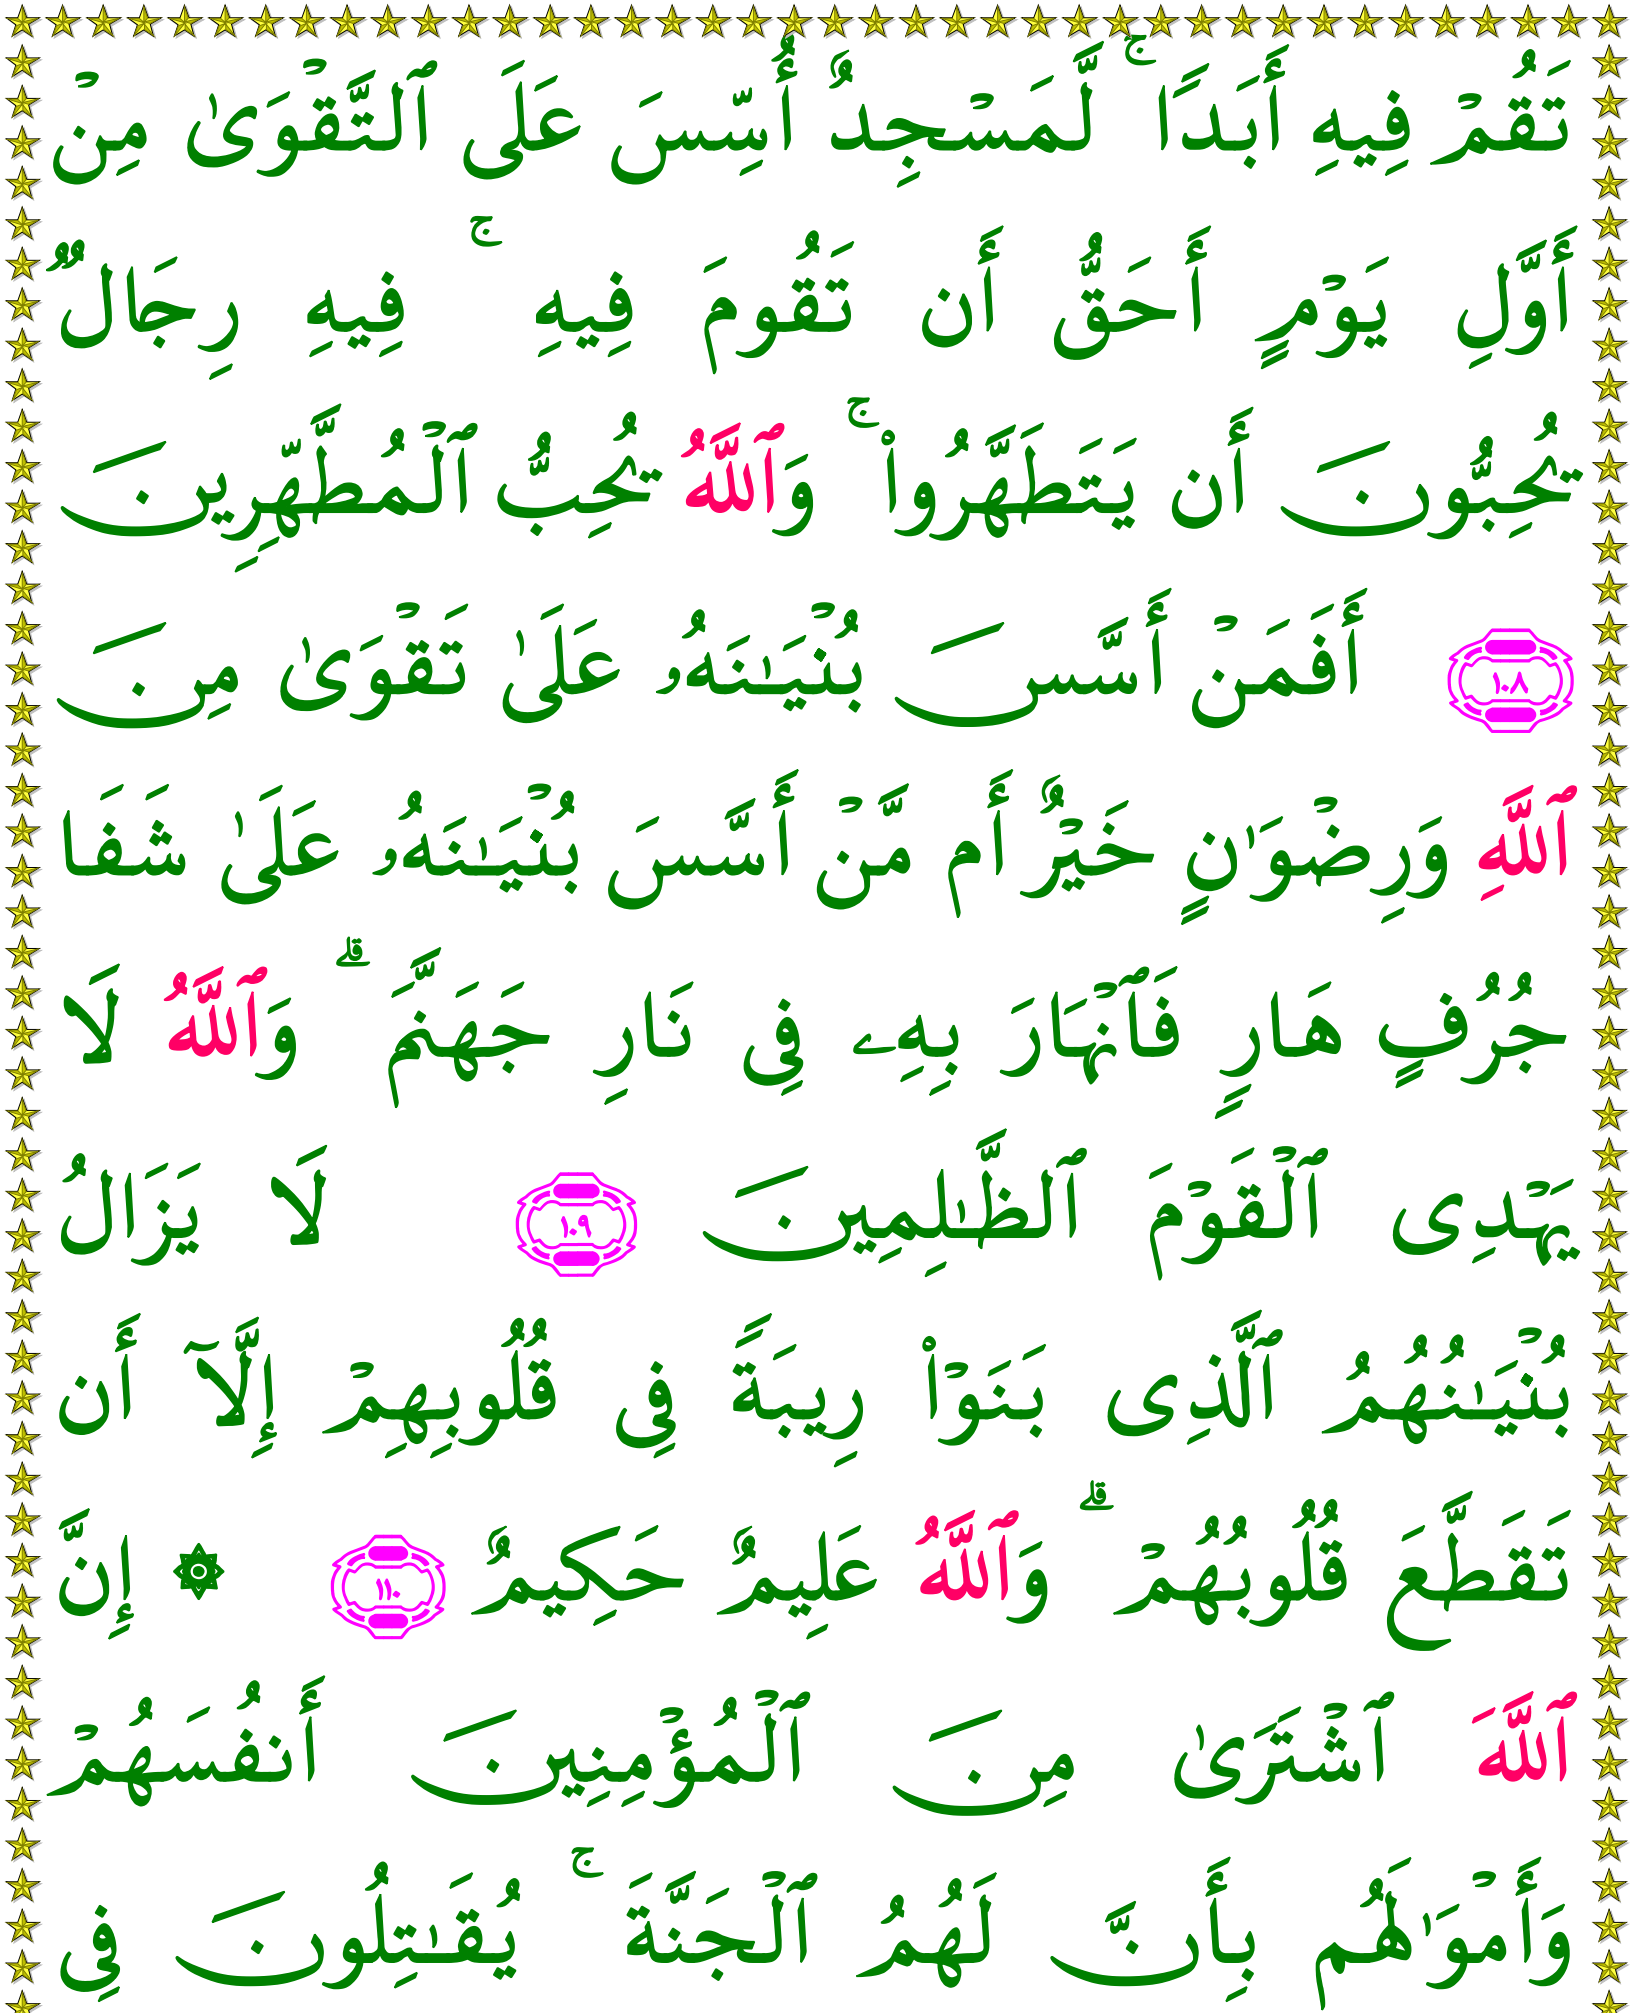 تَقُمْ فِيهِ أَبَدًا ۚ لَّمَسْجِدٌ أُسِّسَ عَلَى ٱلتَّقْوَىٰ مِنْ
أَوَّلِ يَوْمٍ أَحَقُّ أَن تَقُومَ فِيهِ ۚ فِيهِ رِجَالٌ
يُحِبُّونَ أَن يَتَطَهَّرُوا۟ ۚ وَٱللَّهُ يُحِبُّ ٱلْمُطَّهِّرِينَ
١٠٨ أَفَمَنْ أَسَّسَ بُنْيَـٰنَهُۥ عَلَىٰ تَقْوَىٰ مِنَ
ٱللَّهِ وَرِضْوَٰنٍ خَيْرٌ أَم مَّنْ أَسَّسَ بُنْيَـٰنَهُۥ عَلَىٰ شَفَا
جُرُفٍ هَارٍ فَٱنْهَارَ بِهِۦ فِى نَارِ جَهَنَّمَ ۗ وَٱللَّهُ لَا
يَهْدِى ٱلْقَوْمَ ٱلظَّـٰلِمِينَ ١٠٩ لَا يَزَالُ
بُنْيَـٰنُهُمُ ٱلَّذِى بَنَوْا۟ رِيبَةً فِى قُلُوبِهِمْ إِلَّآ أَن
تَقَطَّعَ قُلُوبُهُمْ ۗ وَٱللَّهُ عَلِيمٌ حَكِيمٌ ١١٠ ۞ إِنَّ
ٱللَّهَ ٱشْتَرَىٰ مِنَ ٱلْمُؤْمِنِينَ أَنفُسَهُمْ
وَأَمْوَٰلَهُم بِأَنَّ لَهُمُ ٱلْجَنَّةَ ۚ يُقَـٰتِلُونَ فِى